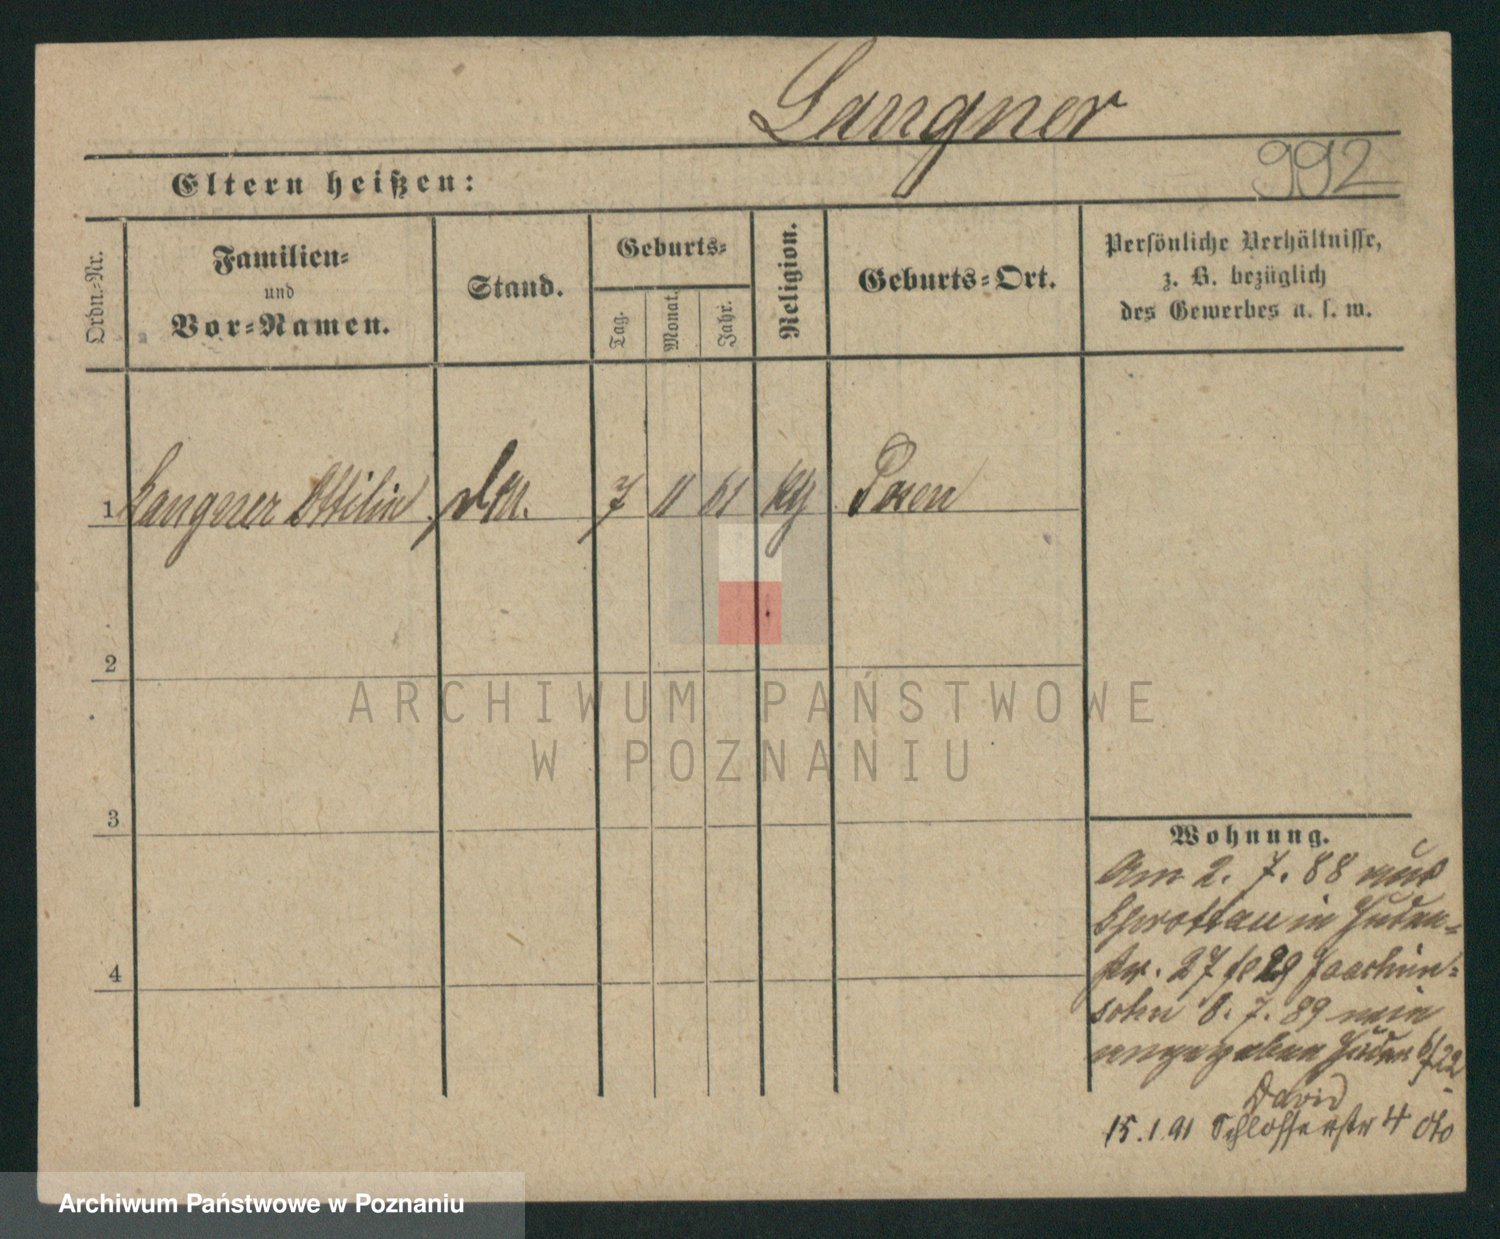 Langner
992
Eltern heißen:
Ordn.-Nr.
Familien-
und
Vor-Namen.
Stand.
Geburts-
Tag.
Monat.
Jahr.
Religion.
Geburts-Ort.
Persönliche Verhältnisse,
z. B. bezüglich
des Gewerbes u. s. w.
1 Langner Ottilie 7 11 61 Posen
2
3
4
ARCHIWUM PAŃSTWOWE
W POZNANIU
Wohnung.
Am 2. 7. 88 aus
Sprottau in Juden-
str. 27 Joachim-
sohn 8. 7. 89
Juden
David
15. 1. 91 Schlosserstr 4
Archiwum Państwowe w Poznaniu